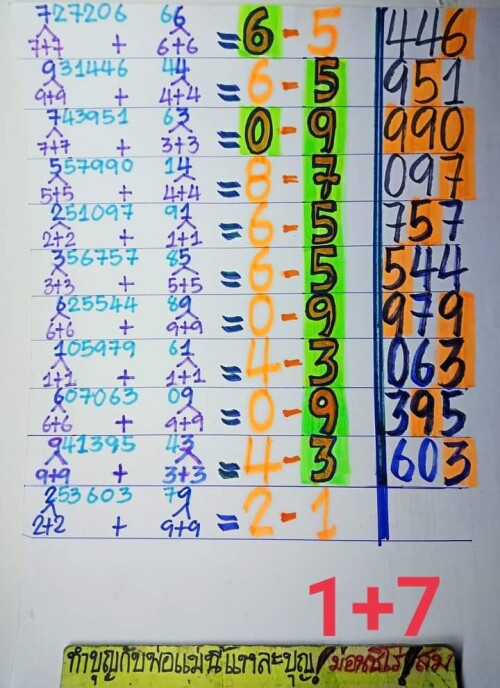 727206 66
7+7 + 6+6 = 6 - 5 446
931446 44
9+9 + 4+4 = 6 - 5 951
743951 63
7+7 + 3+3 = 0 - 9 990
557990 14
5+5 + 4+4 = 8 - 7 097
251097 91
2+2 + 1+1 = 6 - 5 757
356757 85
3+3 + 5+5 = 6 - 5 544
625544 89
6+6 + 9+9 = 0 - 9 979
105979 61
1+1 + 1+1 = 4 - 3 063
607063 09
6+6 + 9+9 = 0 - 9 395
941395 43
9+9 + 3+3 = 4 - 3 603
253603 79
2+2 + 9+9 = 2 - 1
1+7
ทำบุญกับพ่อแม่นี่แหละบุญ